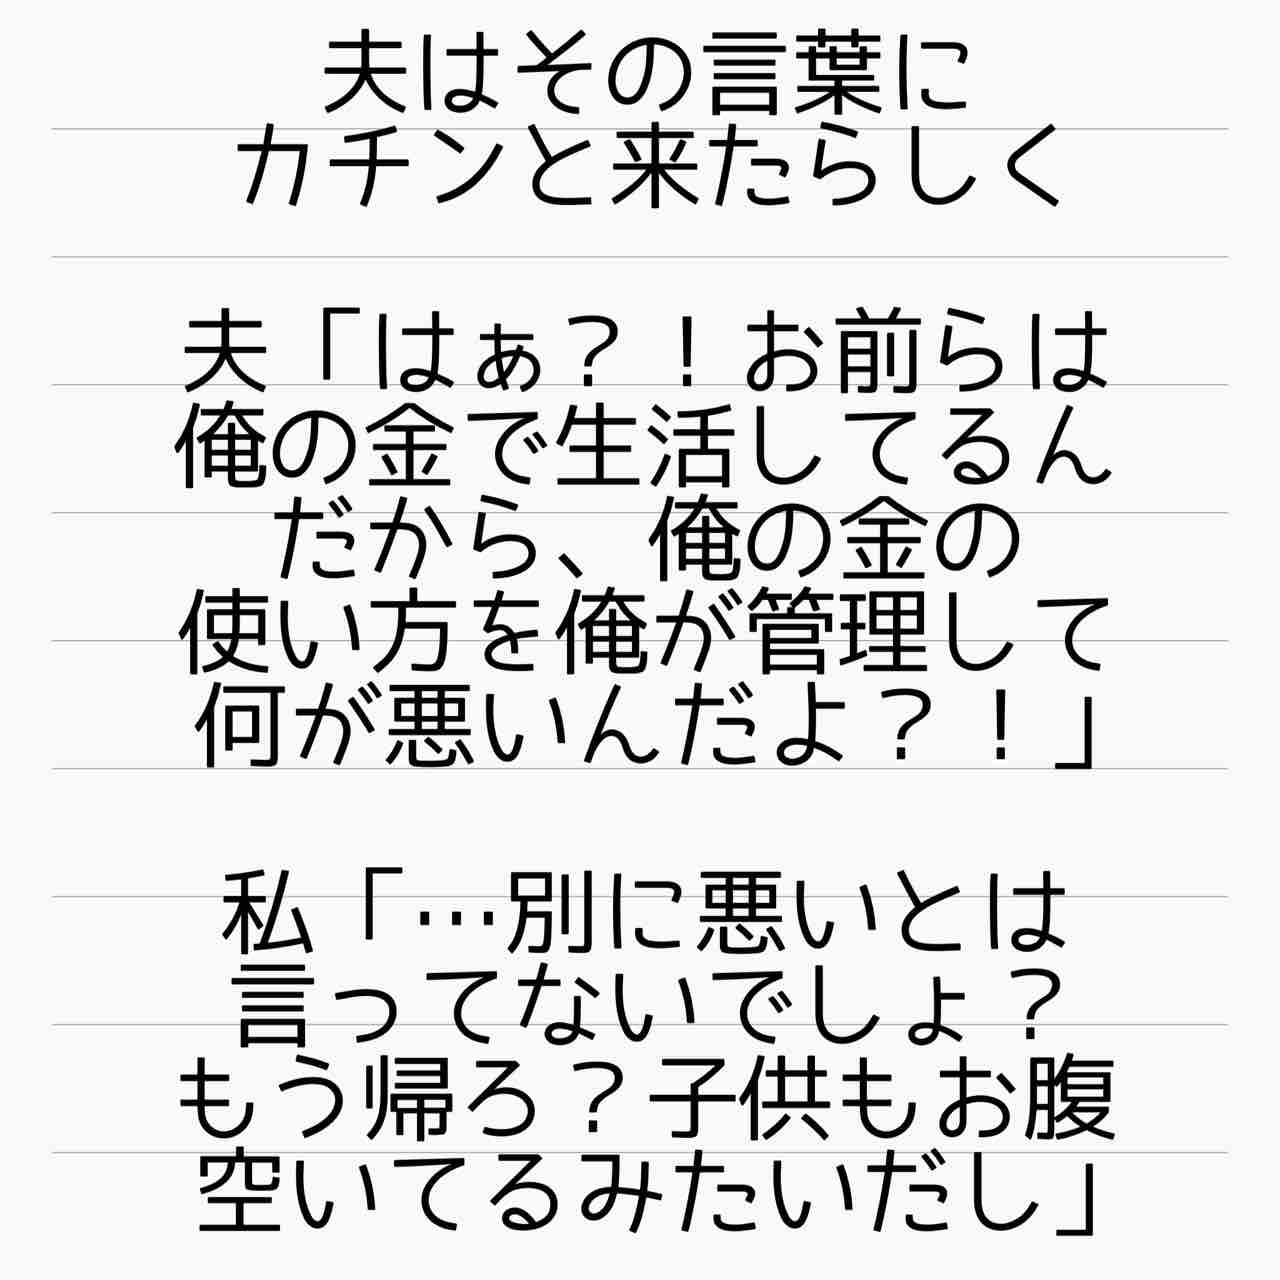 夫はその言葉に
カチンと来たらしく
夫「はぁ？！お前らは
俺の金で生活してるん
だから、俺の金の
使い方を俺が管理して
何が悪いんだよ？！」
私「…別に悪いとは
言ってないでしょ？
もう帰ろ？子供もお腹
空いてるみたいだし」